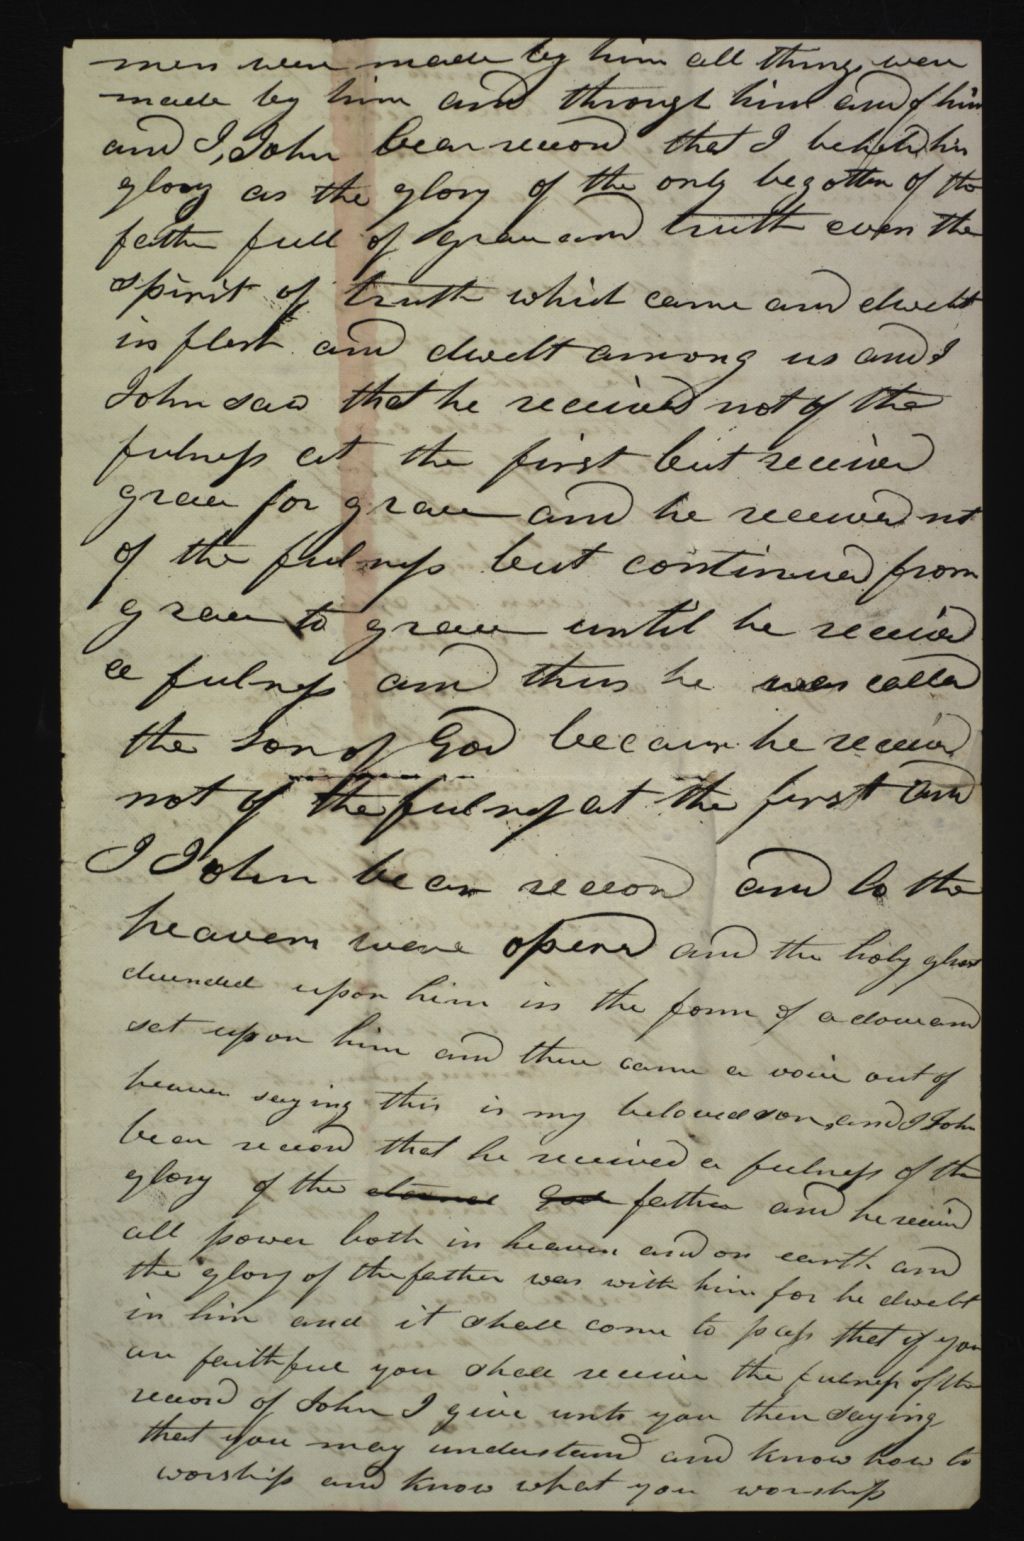 men were made by him all things were
made by him and through him and of him
and I, John bear record that I beheld his
glory as the glory of the only begotten of the
father full of grace and truth even the
spirit of truth which came and dwelt
in flesh and dwelt among us and I
John saw that he received not of the
fulness at the first but received
grace for grace and he received not
of the fulness but continued from
grace to grace until he received
a fulness and thus he was called
the son of God because he received
not of the fulness at the first and
I John bear record and lo the
heavens were opened and the holy ghost
decended upon him in the form of a dove and
set upon him and there came a voice out of
heaven saying this is my beloved son, and I John
bear record that he received a fulness of the
glory of the eternal God father and he received
all power both in heaven and on earth and
the glory of the father was with him for he dwelt
in him and it shall come to pass that if you
are faithful you shall receive the fulness of the
record of John I give unto you these saying
that you may understand and know how to
worship and know what you worship